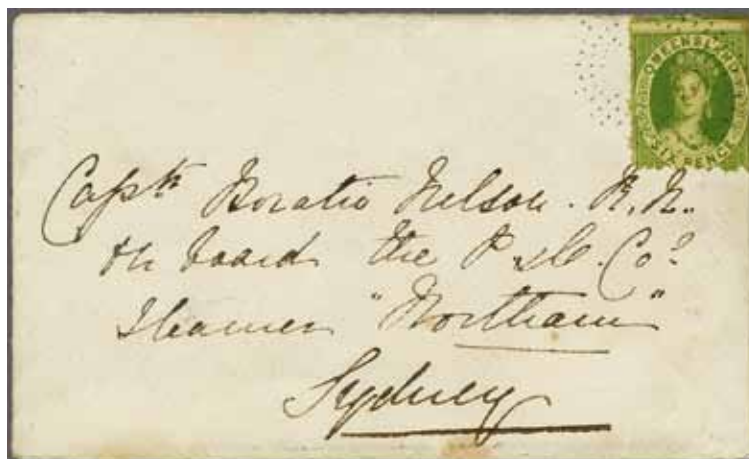 QUEENSLAND
SIX PENCE
Captn Horatio Nelson. R. N.
on board the P & O. Co.
Steamer "Northam"
Sydney